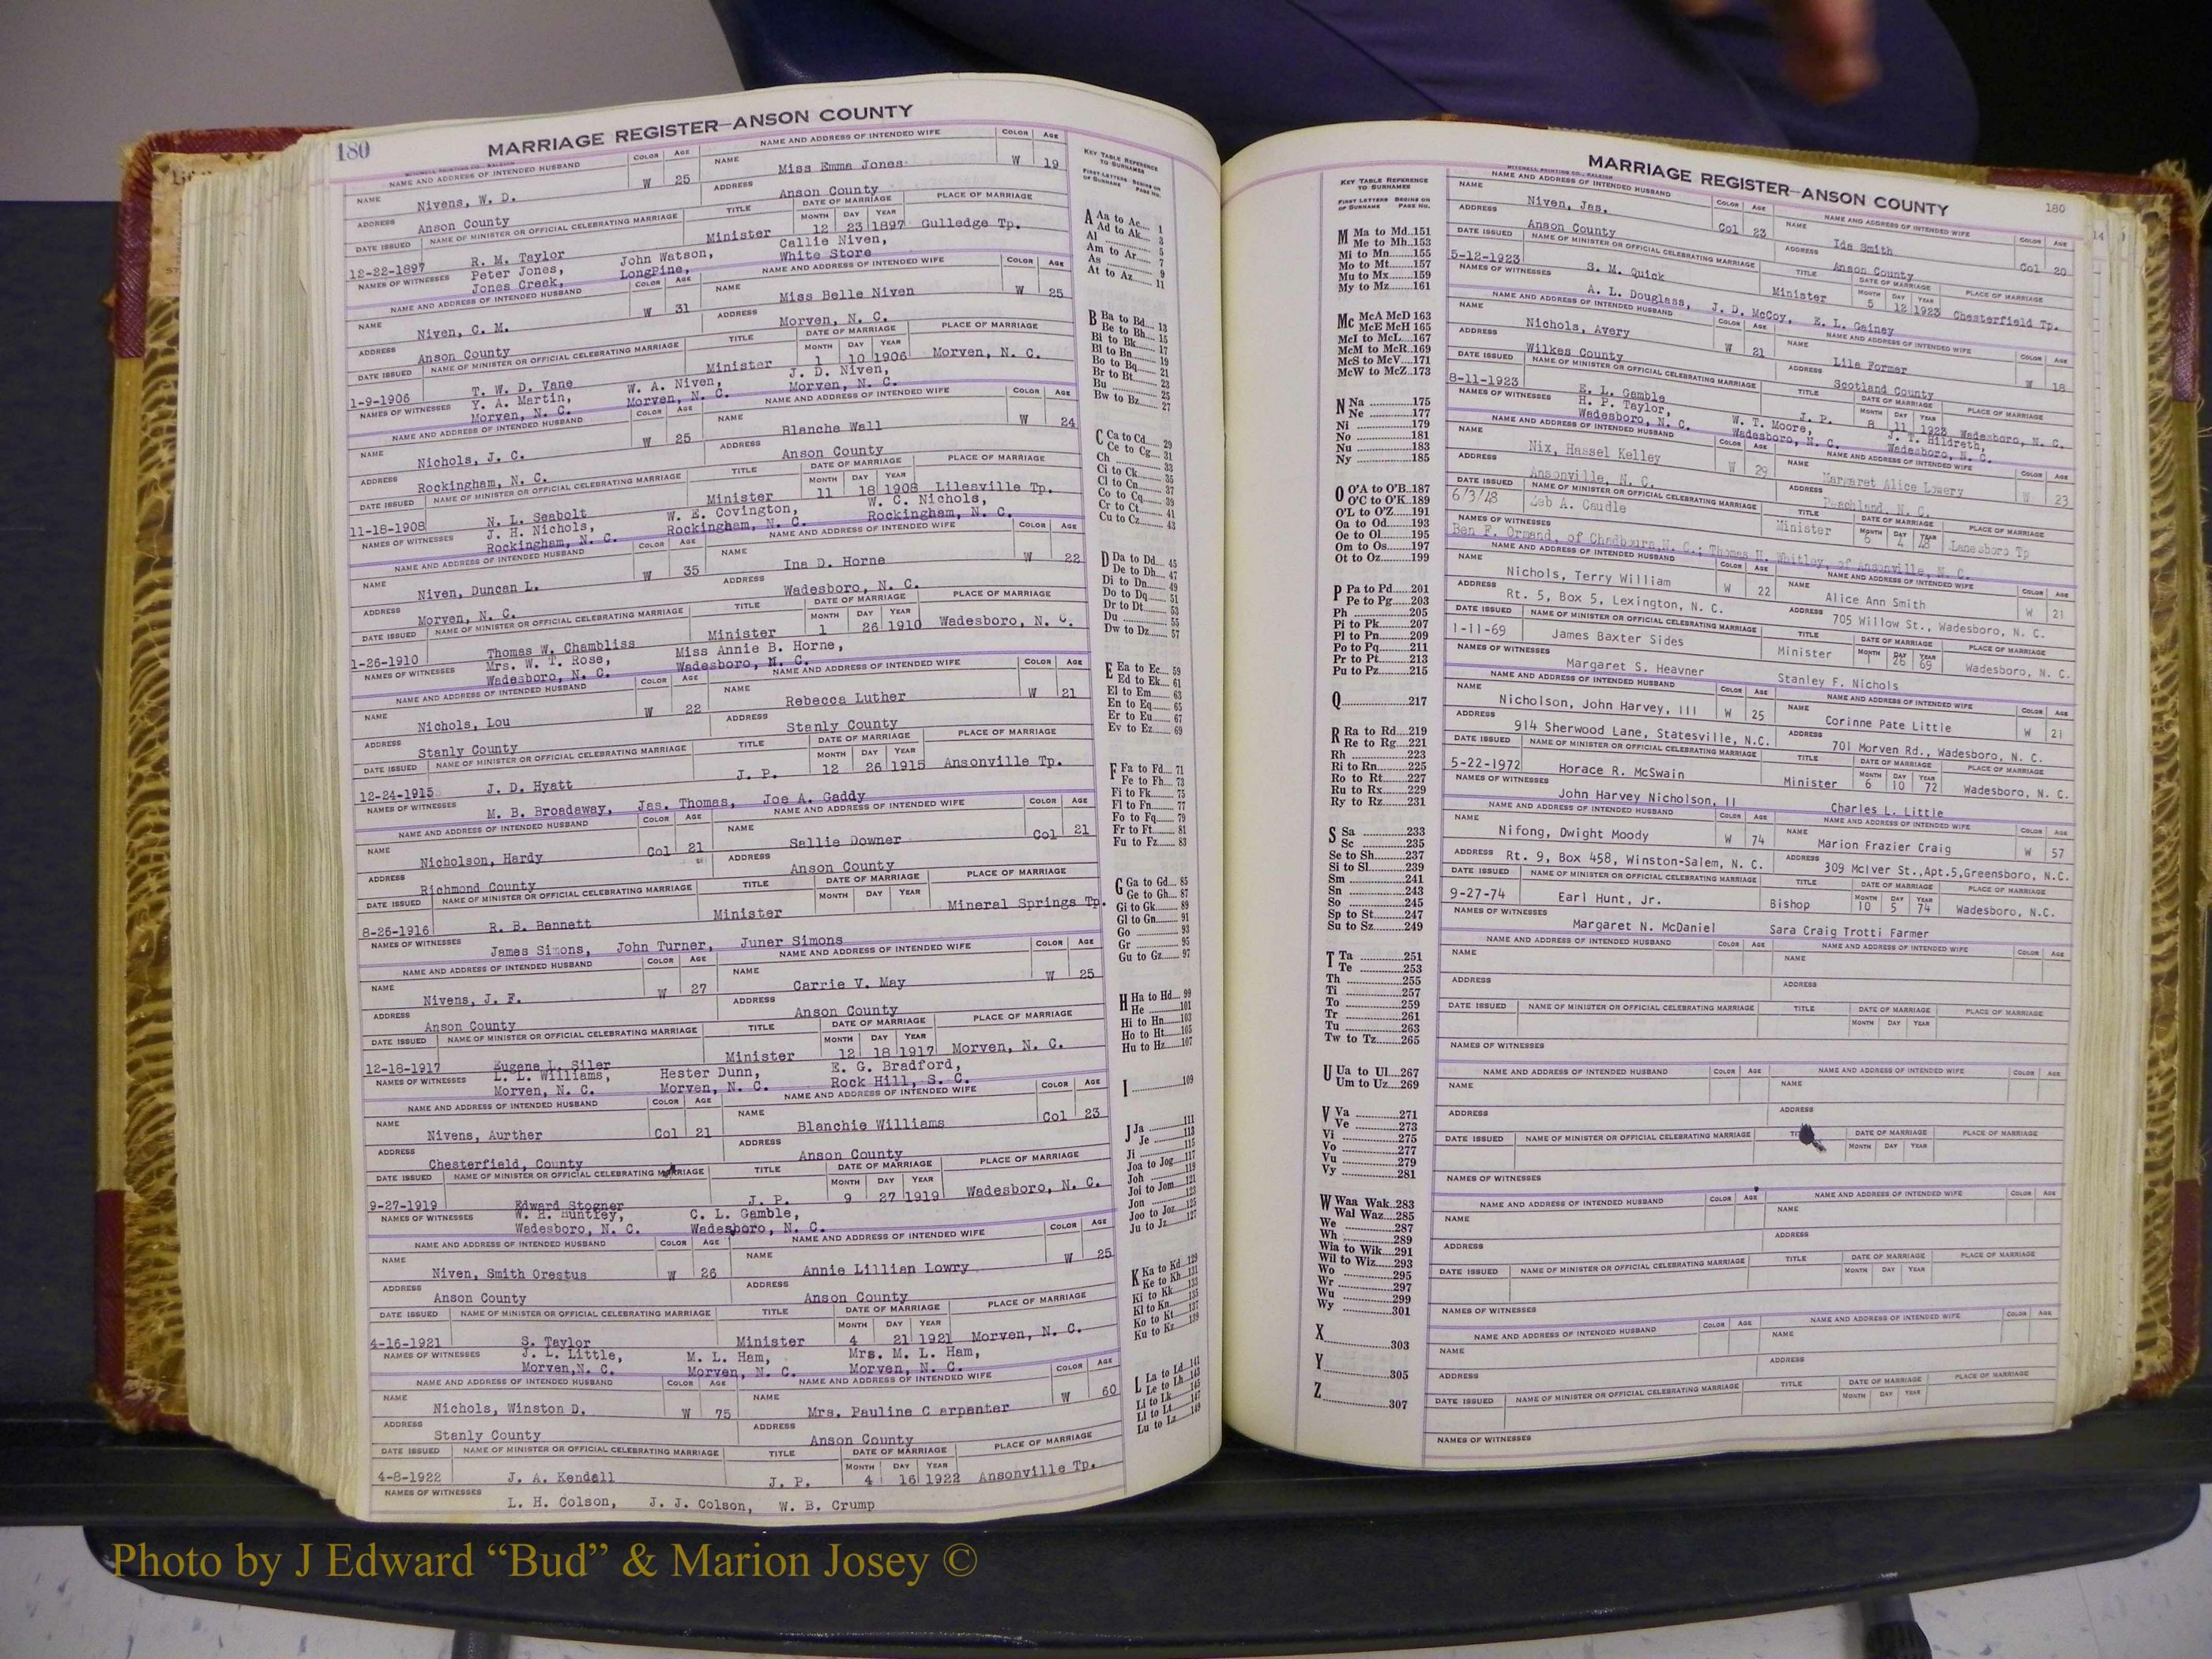 180
MARRIAGE REGISTER—ANSON COUNTY
MITCHELL PRINTING CO., RALEIGH
NAME AND ADDRESS OF INTENDED HUSBAND COLOR AGE NAME AND ADDRESS OF INTENDED WIFE COLOR AGE
NAME Nivens, W. D. W 25 NAME Miss Emma Jones W 19
ADDRESS Anson County ADDRESS Anson County
DATE ISSUED NAME OF MINISTER OR OFFICIAL CELEBRATING MARRIAGE TITLE DATE OF MARRIAGE MONTH DAY YEAR PLACE OF MARRIAGE
12-22-1897 R. M. Taylor Minister 12 23 1897 Gulledge Tp.
NAMES OF WITNESSES Peter Jones, John Watson, Callie Niven,
Jones Creek, LongPine, White Store
NAME AND ADDRESS OF INTENDED HUSBAND COLOR AGE NAME AND ADDRESS OF INTENDED WIFE COLOR AGE
NAME Niven, C. M. W 31 NAME Miss Belle Niven W 25
ADDRESS Anson County ADDRESS Morven, N. C.
DATE ISSUED NAME OF MINISTER OR OFFICIAL CELEBRATING MARRIAGE TITLE DATE OF MARRIAGE MONTH DAY YEAR PLACE OF MARRIAGE
1-9-1906 T. W. D. Vane Minister 1 10 1906 Morven, N. C.
NAMES OF WITNESSES Y. A. Martin, W. A. Niven, J. D. Niven,
Morven, N. C. Morven, N. C. Morven, N. C.
NAME AND ADDRESS OF INTENDED HUSBAND COLOR AGE NAME AND ADDRESS OF INTENDED WIFE COLOR AGE
NAME Nichols, J. C. W 25 NAME Blanche Wall W 24
ADDRESS Rockingham, N. C. ADDRESS Anson County
DATE ISSUED NAME OF MINISTER OR OFFICIAL CELEBRATING MARRIAGE TITLE DATE OF MARRIAGE MONTH DAY YEAR PLACE OF MARRIAGE
11-18-1908 N. L. Seabolt Minister 11 18 1908 Lilesville Tp.
NAMES OF WITNESSES J. H. Nichols, W. E. Covington, W. C. Nichols,
Rockingham, N. C. Rockingham, N. C. Rockingham, N. C.
NAME AND ADDRESS OF INTENDED HUSBAND COLOR AGE NAME AND ADDRESS OF INTENDED WIFE COLOR AGE
NAME Niven, Duncan L. W 35 NAME Ina D. Horne W 22
ADDRESS Morven, N. C. ADDRESS Wadesboro, N. C.
DATE ISSUED NAME OF MINISTER OR OFFICIAL CELEBRATING MARRIAGE TITLE DATE OF MARRIAGE MONTH DAY YEAR PLACE OF MARRIAGE
1-26-1910 Thomas W. Chambliss Minister 1 26 1910 Wadesboro, N. C.
NAMES OF WITNESSES Mrs. W. T. Rose, Miss Annie B. Horne,
Wadesboro, N. C. Wadesboro, N. C.
NAME AND ADDRESS OF INTENDED HUSBAND COLOR AGE NAME AND ADDRESS OF INTENDED WIFE COLOR AGE
NAME Nichols, Lou W 22 NAME Rebecca Luther W 21
ADDRESS Stanly County ADDRESS Stanly County
DATE ISSUED NAME OF MINISTER OR OFFICIAL CELEBRATING MARRIAGE TITLE DATE OF MARRIAGE MONTH DAY YEAR PLACE OF MARRIAGE
12-24-1915 J. D. Hyatt J. P. 12 26 1915 Ansonville Tp.
NAMES OF WITNESSES M. B. Broadaway, Jas. Thomas, Joe A. Gaddy
NAME AND ADDRESS OF INTENDED HUSBAND COLOR AGE NAME AND ADDRESS OF INTENDED WIFE COLOR AGE
NAME Nicholson, Hardy Col 21 NAME Sallie Downer Col 21
ADDRESS Richmond County ADDRESS Anson County
DATE ISSUED NAME OF MINISTER OR OFFICIAL CELEBRATING MARRIAGE TITLE DATE OF MARRIAGE MONTH DAY YEAR PLACE OF MARRIAGE
8-26-1916 R. B. Bennett Minister Mineral Springs Tp.
NAMES OF WITNESSES James Simons, John Turner, Juner Simons
NAME AND ADDRESS OF INTENDED HUSBAND COLOR AGE NAME AND ADDRESS OF INTENDED WIFE COLOR AGE
NAME Nivens, J. F. W 27 NAME Carrie V. May W 25
ADDRESS Anson County ADDRESS Anson County
DATE ISSUED NAME OF MINISTER OR OFFICIAL CELEBRATING MARRIAGE TITLE DATE OF MARRIAGE MONTH DAY YEAR PLACE OF MARRIAGE
12-18-1917 Eugene L. Siler Minister 12 18 1917 Morven, N. C.
NAMES OF WITNESSES L. L. Williams, Hester Dunn, E. G. Bradford,
Morven, N. C. Morven, N. C. Rock Hill, S. C.
NAME AND ADDRESS OF INTENDED HUSBAND COLOR AGE NAME AND ADDRESS OF INTENDED WIFE COLOR AGE
NAME Nivens, Aurther Col 21 NAME Blanchie Williams Col 23
ADDRESS Chesterfield, County ADDRESS Anson County
DATE ISSUED NAME OF MINISTER OR OFFICIAL CELEBRATING MARRIAGE TITLE DATE OF MARRIAGE MONTH DAY YEAR PLACE OF MARRIAGE
9-27-1919 Edward Stogner J. P. 9 27 1919 Wadesboro, N. C.
NAMES OF WITNESSES W. H. Huntley, C. L. Gamble,
Wadesboro, N. C. Wadesboro, N. C.
NAME AND ADDRESS OF INTENDED HUSBAND COLOR AGE NAME AND ADDRESS OF INTENDED WIFE COLOR AGE
NAME Niven, Smith Orestus W 26 NAME Annie Lillian Lowry W 25
ADDRESS Anson County ADDRESS Anson County
DATE ISSUED NAME OF MINISTER OR OFFICIAL CELEBRATING MARRIAGE TITLE DATE OF MARRIAGE MONTH DAY YEAR PLACE OF MARRIAGE
4-16-1921 S. Taylor Minister 4 21 1921 Morven, N. C.
NAMES OF WITNESSES J. L. Little, M. L. Ham, Mrs. M. L. Ham,
Morven,N. C. Morven, N. C. Morven, N. C.
NAME AND ADDRESS OF INTENDED HUSBAND COLOR AGE NAME AND ADDRESS OF INTENDED WIFE COLOR AGE
NAME Nichols, Winston D. W 75 NAME Mrs. Pauline C arpenter W 60
ADDRESS Stanly County ADDRESS Anson County
DATE ISSUED NAME OF MINISTER OR OFFICIAL CELEBRATING MARRIAGE TITLE DATE OF MARRIAGE MONTH DAY YEAR PLACE OF MARRIAGE
4-8-1922 J. A. Kendall J. P. 4 16 1922 Ansonville Tp.
NAMES OF WITNESSES L. H. Colson, J. J. Colson, W. B. Crump
KEY TABLE REFERENCE
TO SURNAMES
FIRST LETTERS OF SURNAME BEGINS ON PAGE NO.
A Aa to Ac 1
Ad to Ak 3
Al 5
Am to Ar 7
As 9
At to Az 11
B Ba to Bd 13
Be to Bh 15
Bi to Bk 17
Bl to Bn 19
Bo to Bq 21
Br to Bt 23
Bu 25
Bw to Bz 27
C Ca to Cd 29
Ce to Cg 31
Ch 33
Ci to Ck 35
Cl to Cn 37
Co to Cq 39
Cr to Ct 41
Cu to Cz 43
D Da to Dd 45
De to Dh 47
Di to Dn 49
Do to Dq 51
Dr to Dt 53
Du 55
Dw to Dz 57
E Ea to Ec 59
Ed to Ek 61
El to Em 63
En to Eq 65
Er to Eu 67
Ev to Ez 69
F Fa to Fd 71
Fe to Fh 73
Fi to Fk 75
Fl to Fn 77
Fo to Fq 79
Fr to Ft 81
Fu to Fz 83
G Ga to Gd 85
Ge to Gh 87
Gi to Gk 89
Gl to Gn 91
Go 93
Gr 95
Gu to Gz 97
H Ha to Hd 99
He 101
Hi to Hn 103
Ho to Ht 105
Hu to Hz 107
I 109
J Ja 111
Je 113
Ji 115
Joa to Jog 117
Joh 119
Joi to Jom 121
Jon 123
Joo to Joz 125
Ju to Jz 127
K Ka to Kd 129
Ke to Kh 131
Ki to Kk 133
Kl to Kn 135
Ko to Kt 137
Ku to Kz 139
L La to Ld 141
Le to Lh 143
Li to Lk 145
Ll to Lt 147
Lu to Lz 149
KEY TABLE REFERENCE
TO SURNAMES
FIRST LETTERS OF SURNAME BEGINS ON PAGE NO.
M Ma to Md 151
Me to Mh 153
Mi to Mn 155
Mo to Mt 157
Mu to Mx 159
My to Mz 161
Mc McA McD 163
McE McH 165
McI to McL 167
McM to McR 169
McS to McV 171
McW to McZ 173
N Na 175
Ne 177
Ni 179
No 181
Nu 183
Ny 185
O O'A to O'B 187
O'C to O'K 189
O'L to O'Z 191
Oa to Od 193
Oe to Ol 195
Om to Os 197
Ot to Oz 199
P Pa to Pd 201
Pe to Pg 203
Ph 205
Pi to Pk 207
Pl to Pn 209
Po to Pq 211
Pr to Pt 213
Pu to Pz 215
Q 217
R Ra to Rd 219
Re to Rg 221
Rh 223
Ri to Rn 225
Ro to Rt 227
Ru to Rx 229
Ry to Rz 231
S Sa 233
Sc 235
Se to Sh 237
Si to Sl 239
Sm 241
Sn 243
So 245
Sp to St 247
Su to Sz 249
T Ta 251
Te 253
Th 255
Ti 257
To 259
Tr 261
Tu 263
Tw to Tz 265
U Ua to Ul 267
Um to Uz 269
V Va 271
Ve 273
Vi 275
Vo 277
Vu 279
Vy 281
W Waa Wak 283
Wal Waz 285
We 287
Wh 289
Wia to Wik 291
Wil to Wiz 293
Wo 295
Wr 297
Wu 299
Wy 301
X 303
Y 305
Z 307
MARRIAGE REGISTER—ANSON COUNTY 180
MITCHELL PRINTING CO., RALEIGH
NAME AND ADDRESS OF INTENDED HUSBAND COLOR AGE NAME AND ADDRESS OF INTENDED WIFE COLOR AGE
NAME Niven, Jas. Col 23 NAME Ida Smith Col 20
ADDRESS Anson County ADDRESS Anson County
DATE ISSUED NAME OF MINISTER OR OFFICIAL CELEBRATING MARRIAGE TITLE DATE OF MARRIAGE MONTH DAY YEAR PLACE OF MARRIAGE
5-12-1923 S. M. Quick Minister 5 12 1923 Chesterfield Tp.
NAMES OF WITNESSES A. L. Douglass, J. D. McCoy, E. L. Gainey
NAME AND ADDRESS OF INTENDED HUSBAND COLOR AGE NAME AND ADDRESS OF INTENDED WIFE COLOR AGE
NAME Nichols, Avery W 21 NAME Lila Former W 18
ADDRESS Wilkes County ADDRESS Scotland County
DATE ISSUED NAME OF MINISTER OR OFFICIAL CELEBRATING MARRIAGE TITLE DATE OF MARRIAGE MONTH DAY YEAR PLACE OF MARRIAGE
8-11-1923 E. L. Gamble J. P. 8 11 1923 Wadesboro, N. C.
NAMES OF WITNESSES H. P. Taylor, W. T. Moore, J. T. Hildreth,
Wadesboro, N. C. Wadesboro, N. C. Wadesboro, N. C.
NAME AND ADDRESS OF INTENDED HUSBAND COLOR AGE NAME AND ADDRESS OF INTENDED WIFE COLOR AGE
NAME Nix, Hassel Kelley W 29 NAME Margaret Alice Lowery W 23
ADDRESS Ansonville, N. C. ADDRESS Peachland, N. C.
DATE ISSUED NAME OF MINISTER OR OFFICIAL CELEBRATING MARRIAGE TITLE DATE OF MARRIAGE MONTH DAY YEAR PLACE OF MARRIAGE
6/3/48 Zeb A. Caudle Minister 6 4 48 Lanesboro Tp
NAMES OF WITNESSES
Ben F. Ormand, of Chadbourn,N. C.; Thomas H. Whitley, of Ansonville, N. C.
NAME AND ADDRESS OF INTENDED HUSBAND COLOR AGE NAME AND ADDRESS OF INTENDED WIFE COLOR AGE
NAME Nichols, Terry William W 22 NAME Alice Ann Smith W 21
ADDRESS Rt. 5, Box 5, Lexington, N. C. ADDRESS 705 Willow St., Wadesboro, N. C.
DATE ISSUED NAME OF MINISTER OR OFFICIAL CELEBRATING MARRIAGE TITLE DATE OF MARRIAGE MONTH DAY YEAR PLACE OF MARRIAGE
1-11-69 James Baxter Sides Minister 1 26 69 Wadesboro, N. C.
NAMES OF WITNESSES Margaret S. Heavner Stanley F. Nichols
NAME AND ADDRESS OF INTENDED HUSBAND COLOR AGE NAME AND ADDRESS OF INTENDED WIFE COLOR AGE
NAME Nicholson, John Harvey, III W 25 NAME Corinne Pate Little W 21
ADDRESS 914 Sherwood Lane, Statesville, N.C. ADDRESS 701 Morven Rd., Wadesboro, N. C.
DATE ISSUED NAME OF MINISTER OR OFFICIAL CELEBRATING MARRIAGE TITLE DATE OF MARRIAGE MONTH DAY YEAR PLACE OF MARRIAGE
5-22-1972 Horace R. McSwain Minister 6 10 72 Wadesboro, N. C.
NAMES OF WITNESSES John Harvey Nicholson, II Charles L. Little
NAME AND ADDRESS OF INTENDED HUSBAND COLOR AGE NAME AND ADDRESS OF INTENDED WIFE COLOR AGE
NAME Nifong, Dwight Moody W 74 NAME Marion Frazier Craig W 57
ADDRESS Rt. 9, Box 458, Winston-Salem, N. C. ADDRESS 309 McIver St.,Apt.5,Greensboro, N.C.
DATE ISSUED NAME OF MINISTER OR OFFICIAL CELEBRATING MARRIAGE TITLE DATE OF MARRIAGE MONTH DAY YEAR PLACE OF MARRIAGE
9-27-74 Earl Hunt, Jr. Bishop 10 5 74 Wadesboro, N.C.
NAMES OF WITNESSES Margaret N. McDaniel Sara Craig Trotti Farmer
NAME AND ADDRESS OF INTENDED HUSBAND COLOR AGE NAME AND ADDRESS OF INTENDED WIFE COLOR AGE
NAME NAME
ADDRESS ADDRESS
DATE ISSUED NAME OF MINISTER OR OFFICIAL CELEBRATING MARRIAGE TITLE DATE OF MARRIAGE MONTH DAY YEAR PLACE OF MARRIAGE
NAMES OF WITNESSES
NAME AND ADDRESS OF INTENDED HUSBAND COLOR AGE NAME AND ADDRESS OF INTENDED WIFE COLOR AGE
NAME NAME
ADDRESS ADDRESS
DATE ISSUED NAME OF MINISTER OR OFFICIAL CELEBRATING MARRIAGE DATE OF MARRIAGE MONTH DAY YEAR PLACE OF MARRIAGE
NAMES OF WITNESSES
NAME AND ADDRESS OF INTENDED HUSBAND COLOR AGE NAME AND ADDRESS OF INTENDED WIFE COLOR AGE
NAME NAME
ADDRESS ADDRESS
DATE ISSUED NAME OF MINISTER OR OFFICIAL CELEBRATING MARRIAGE TITLE DATE OF MARRIAGE MONTH DAY YEAR PLACE OF MARRIAGE
NAMES OF WITNESSES
NAME AND ADDRESS OF INTENDED HUSBAND COLOR AGE NAME AND ADDRESS OF INTENDED WIFE COLOR AGE
NAME NAME
ADDRESS ADDRESS
DATE ISSUED NAME OF MINISTER OR OFFICIAL CELEBRATING MARRIAGE TITLE DATE OF MARRIAGE MONTH DAY YEAR PLACE OF MARRIAGE
NAMES OF WITNESSES
Photo by J Edward “Bud” & Marion Josey ©